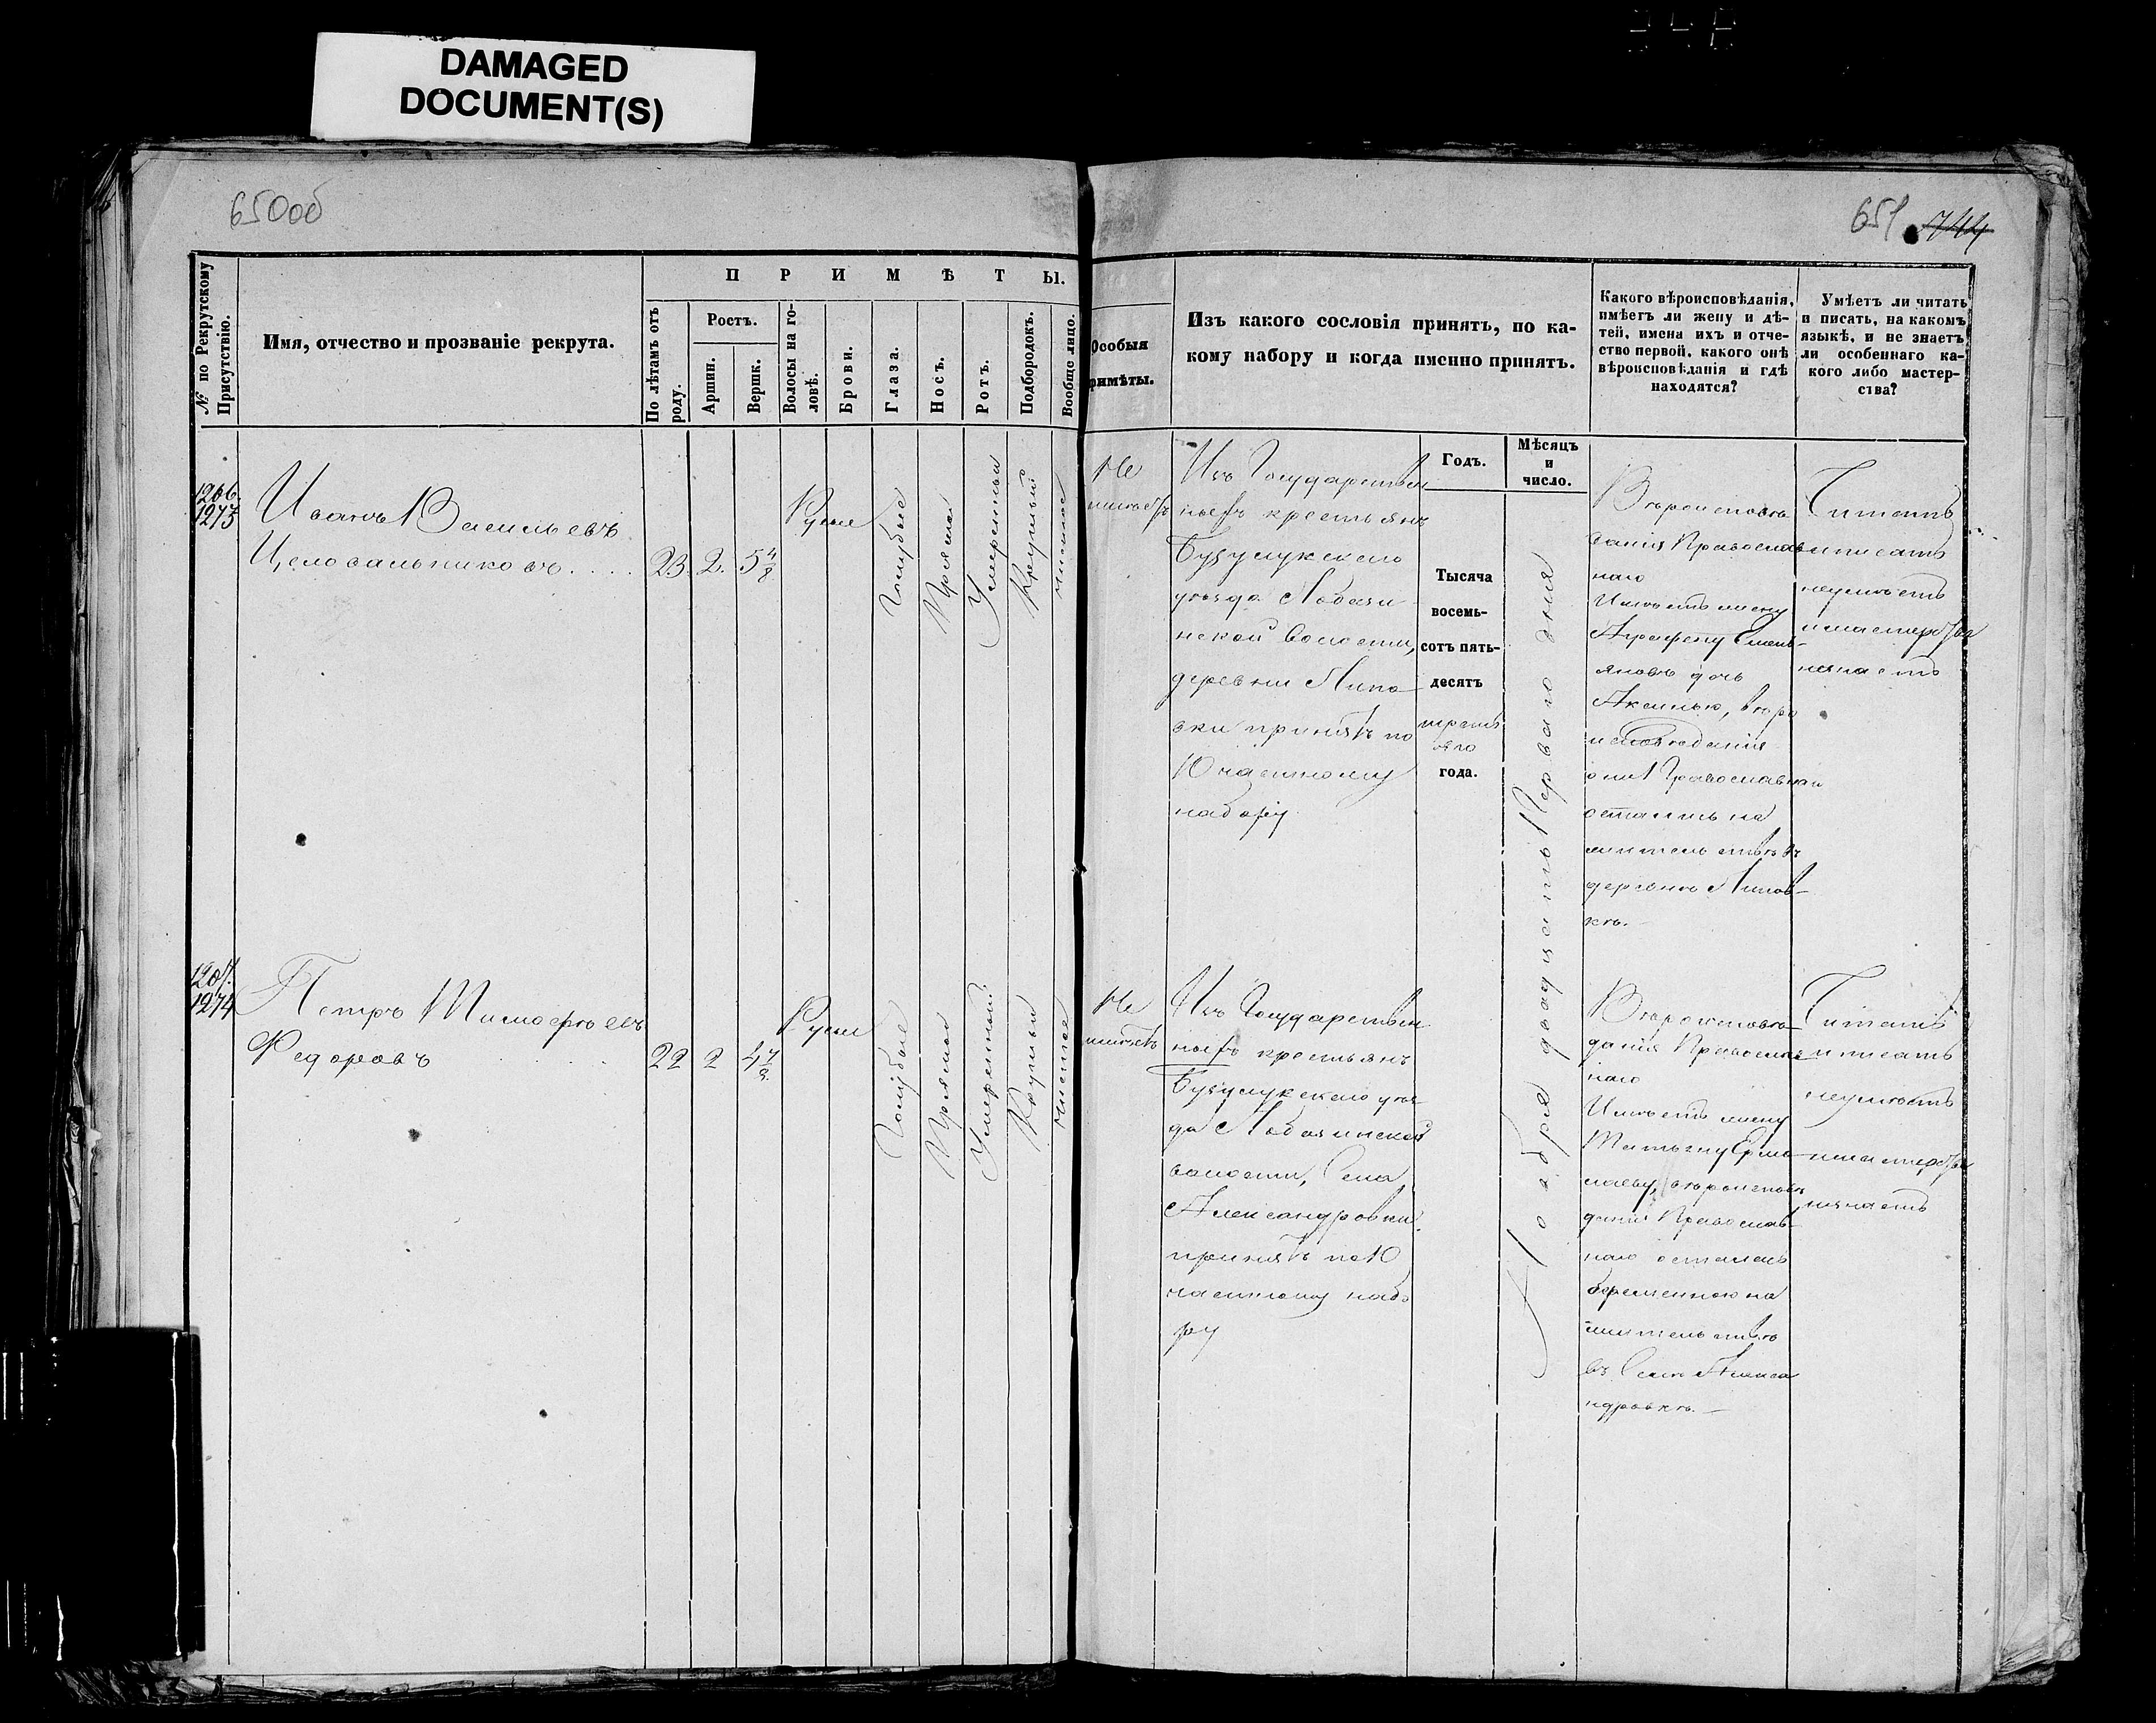 DAMAGED
DOCUMENT(S)
650об
651 744
№ по Рекрутскому
Присутствію.
Имя, отчество и прозваніе рекрута.
ПРИМѢТЫ.
По лѣтамъ отъ
роду.
Ростъ.
Аршин.
Вершк.
Волосы на го-
ловѣ.
Брови.
Глаза.
Носъ.
Ротъ.
Подбородокъ.
Вообще лицо.
Особыя
римѣты.
Изъ какого сословія принятъ, по ка-
кому набору и когда именно принятъ.
Какого вѣроисповѣданія,
имѣетъ ли жену и дѣ-
тей, имена ихъ и отче-
ство первой, какого онѣ
вѣроисповѣданія и гдѣ
находятся?
Умѣетъ ли читать
и писать, на какомъ
языкѣ, и не знаетъ
ли особеннаго ка-
кого либо мастер-
ства?
Годъ.
Мѣсяцъ
и
число.
1206.
1273
Иванъ Васильевъ
Целовальниковъ....
23. 2. 5 4/8
Русые
Голубые
Прямой
Умеренный
Круглый
Чистое
Не
имеетъ
Изъ Государствен
ныхъ крестьянъ
Бузулукскаго
уѣзда Лобази
нской волости,
деревни Липо
вки принятъ по
10 частному
набору
Тысяча
восемь-
сотъ пять-
десятъ
треть
яго
года.
Ноября двадцать Перваго дня
Вѣроисповѣ
данія Православ
наго
Имѣетъ жену
Аграфену Емель-
янову дочь
Аксинью, вѣро
исповѣданія
они Православнаго
остались на
жительствѣ въ
деревнѣ Липов-
кѣ.
Читать
и писать
неумѣетъ
и мастерства
незнаетъ
1207.
1274
Петръ Тимофѣевъ
Федоровъ
22 2 4 7/8
Русые
Голубые
Прямой
Умеренный
Круглый
Чистое
Не
имѣетъ
Изъ Государствен
ныхъ крестьянъ
Бузулукскаго уѣз
да Лобазинской
волости, Села
Александровки
принятъ по 10
частному набо
ру
Вѣроисповѣ
данія Православ
наго
Имѣетъ жену
Татьяну Ермо
лаеву, вѣроисповѣ
данія Православ-
наго осталась
беременною на
жительствѣ
въ Селѣ Алекса
ндровкѣ.
Читать
и писать
неумѣетъ
и мастерства
незнаетъ